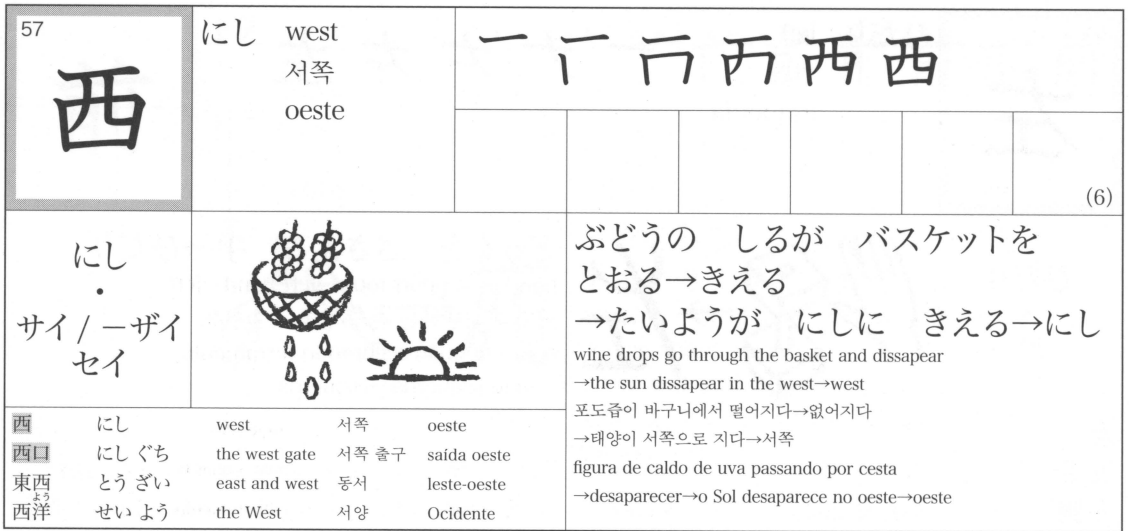 57
西
にし west
서쪽
oeste
一 西
(6)
にし
・
サイ / ーザイ
セイ
ぶどうの しるが バスケットを
とおる→きえる
→たいようが にしに きえる→にし
wine drops go through the basket and dissapear
→the sun dissapear in the west→west
포도즙이 바구니에서 떨어지다→없어지다
→태양이 서쪽으로 지다→서쪽
figura de caldo de uva passando por cesta
→desaparecer→o Sol desaparece no oeste→oeste
西 にし west 서쪽 oeste
西口 にし ぐち the west gate 서쪽 출구 saída oeste
東西 とう ざい east and west 동서 leste-oeste
よう
西洋 せい よう the West 서양 Ocidente